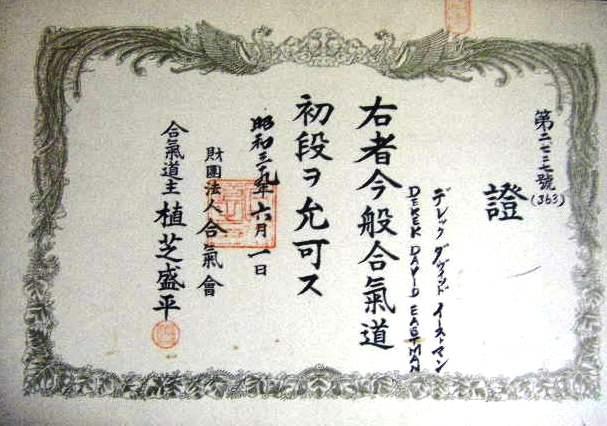 (363)
證
デレック ダヴィッド イーストマン
DEREK DAVID EASTMAN
右者今般合氣道
初段ヲ允可ス
昭和三九年六月一日
財團法人合氣會
合氣道主 植芝盛平